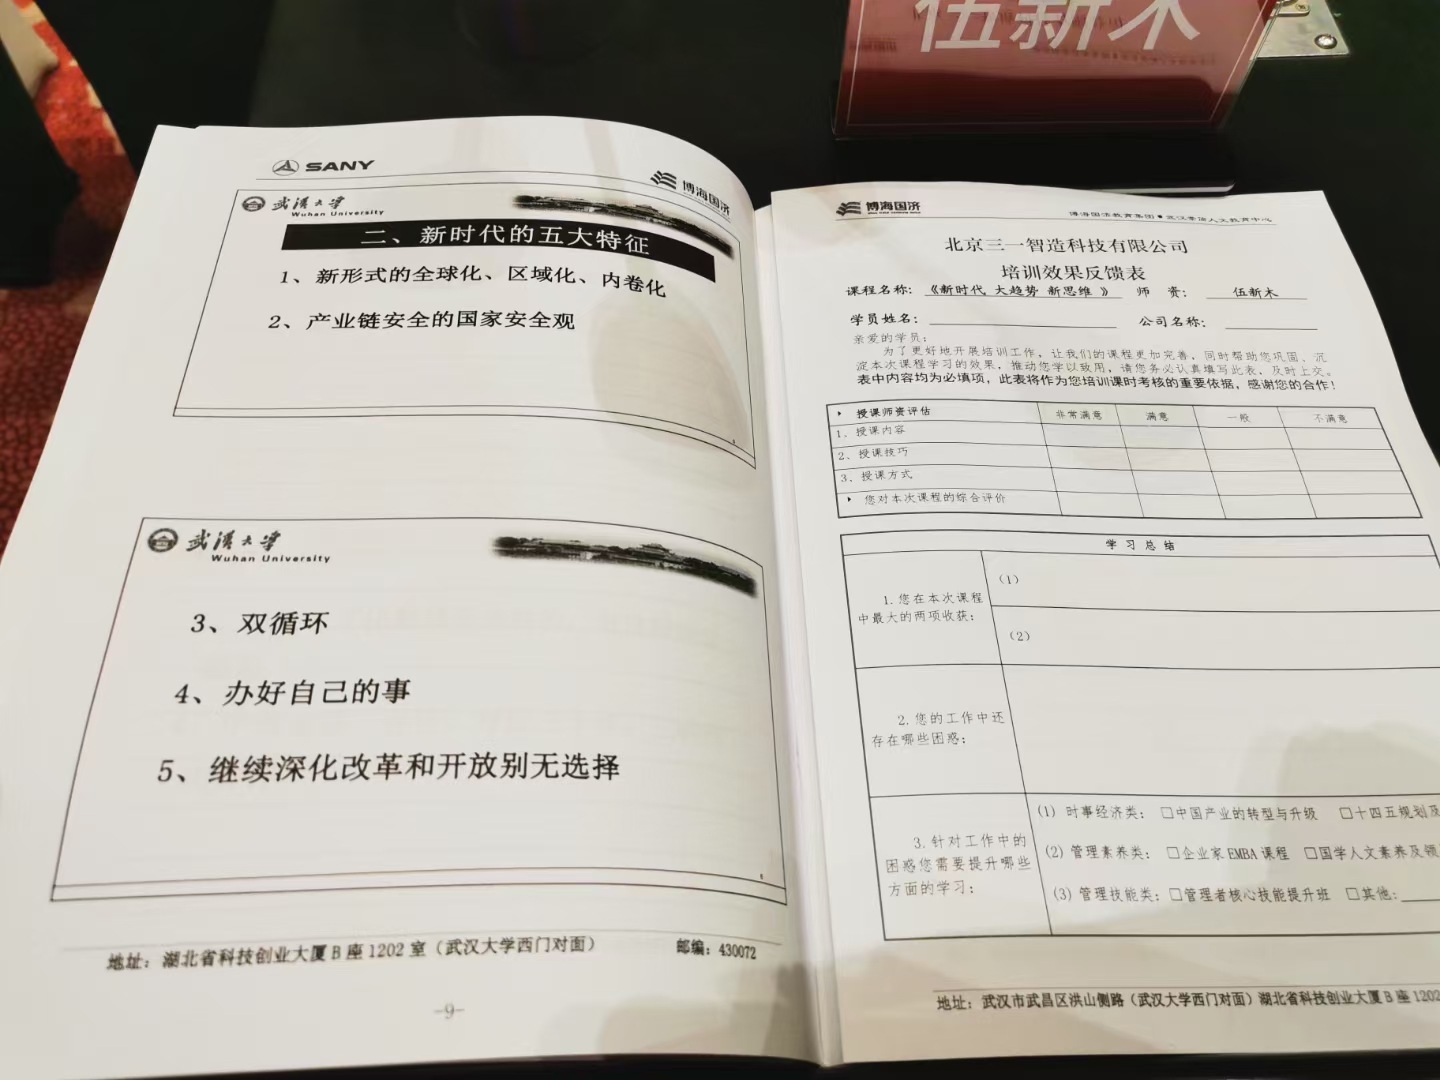 伍新木
SANY
博海国济
武汉大学
Wuhan University
二、新时代的五大特征
1、新形式的全球化、区域化、内卷化
2、产业链安全的国家安全观
武汉大学
Wuhan University
3、双循环
4、办好自己的事
5、继续深化改革和开放别无选择
地址：湖北省科技创业大厦B座1202室（武汉大学西门对面） 邮编：430072
-9-
博海国济
北京三一智造科技有限公司
培训效果反馈表
课程名称：《新时代 大趋势 新思维 》 师 资： 伍新木
学员姓名： 公司名称：
亲爱的学员：
为了更好地开展培训工作，让我们的课程更加完善，同时帮助您巩固、沉
淀本次课程学习的效果，推动您学以致用，请您务必认真填写此表，及时上交。
表中内容均为必填项，此表将作为您培训课时考核的重要依据，感谢您的合作！
授课师资评估 非常满意 满意 一般 不满意
1．授课内容
2、授课技巧
3．授课方式
您对本次课程的综合评价
学习总结
1.您在本次课程
中最大的两项收获：
（1）
（2）
2.您的工作中还
存在哪些困惑：
3.针对工作中的
困惑您需要提升哪些
方面的学习：
(1) 时事经济类： □中国产业的转型与升级 □十四五规划及
(2) 管理素养类： □企业家EMBA课程 □国学人文素养及领
(3) 管理技能类：□管理者核心技能提升班 □其他：
地址：武汉市武昌区洪山侧路（武汉大学西门对面）湖北省科技创业大厦B座1202